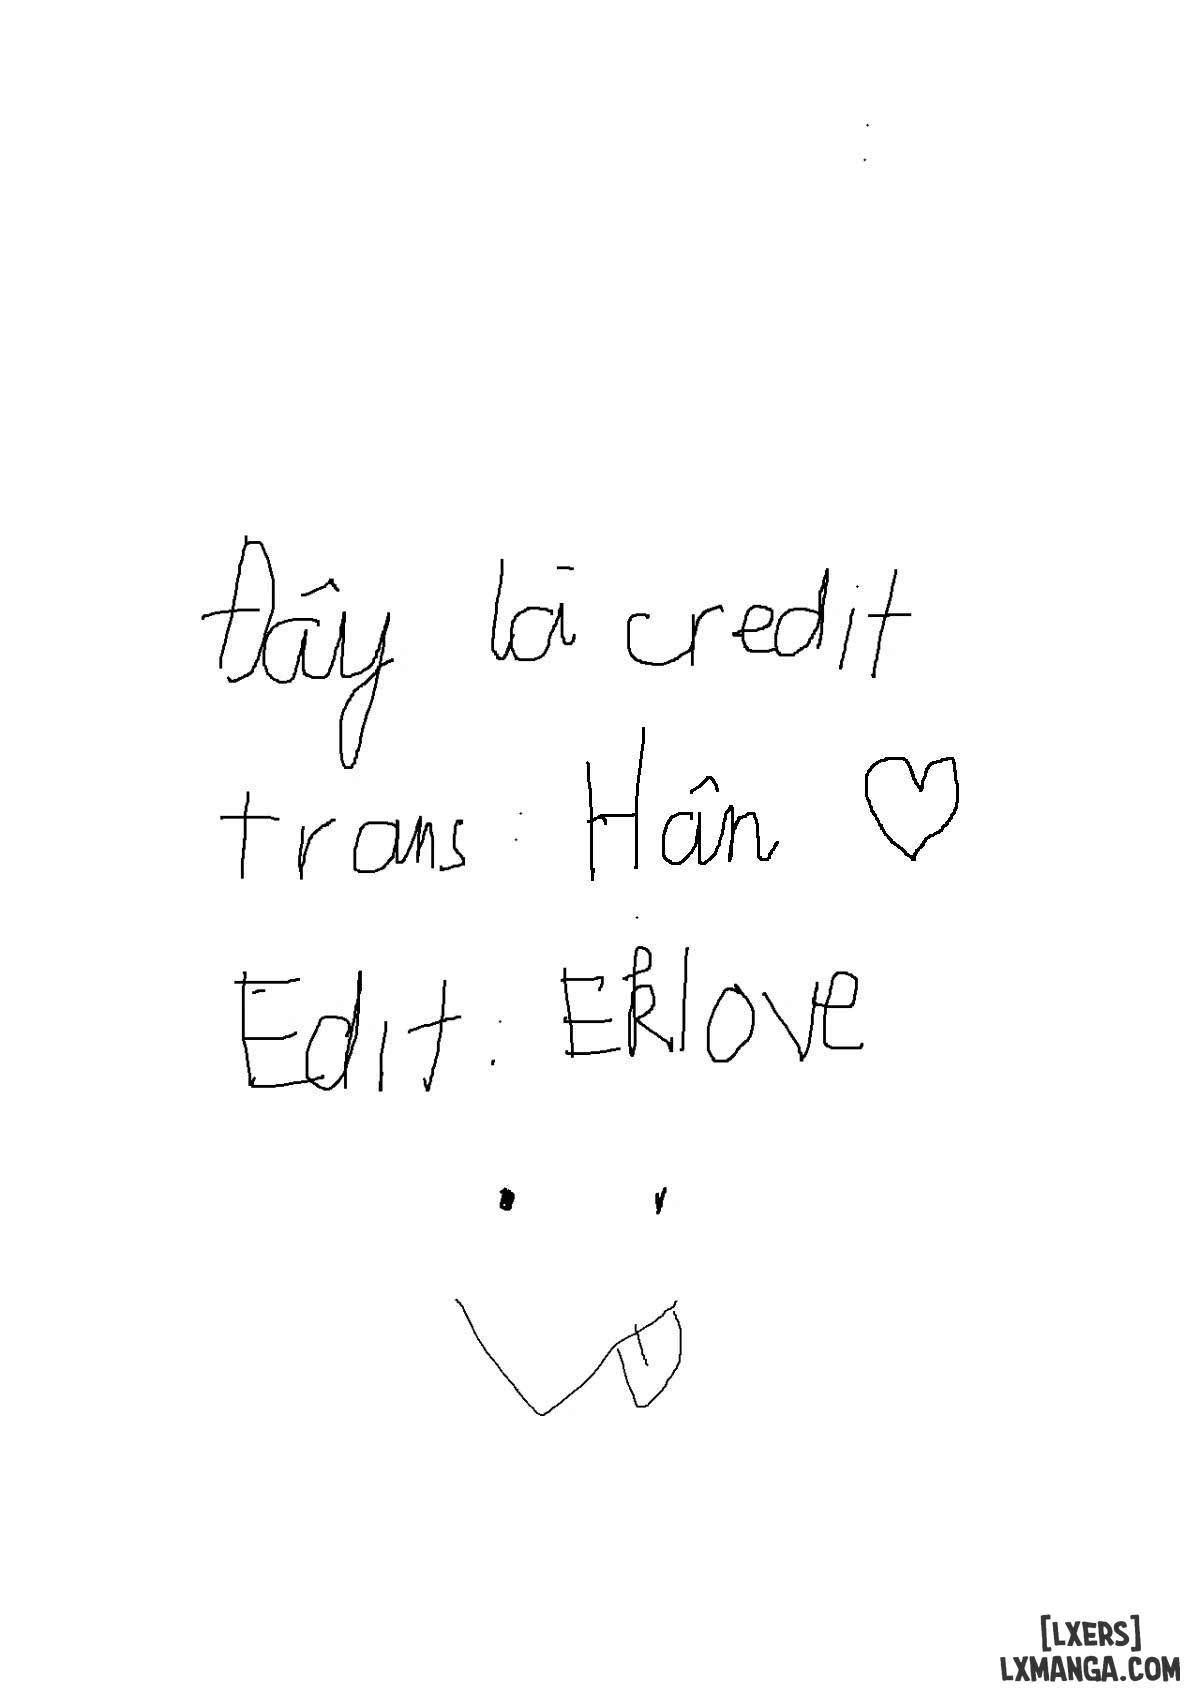 Đây là credit
trans: Hân ♡
Edit: Eklove
[LXERS]
LXMANGA.COM